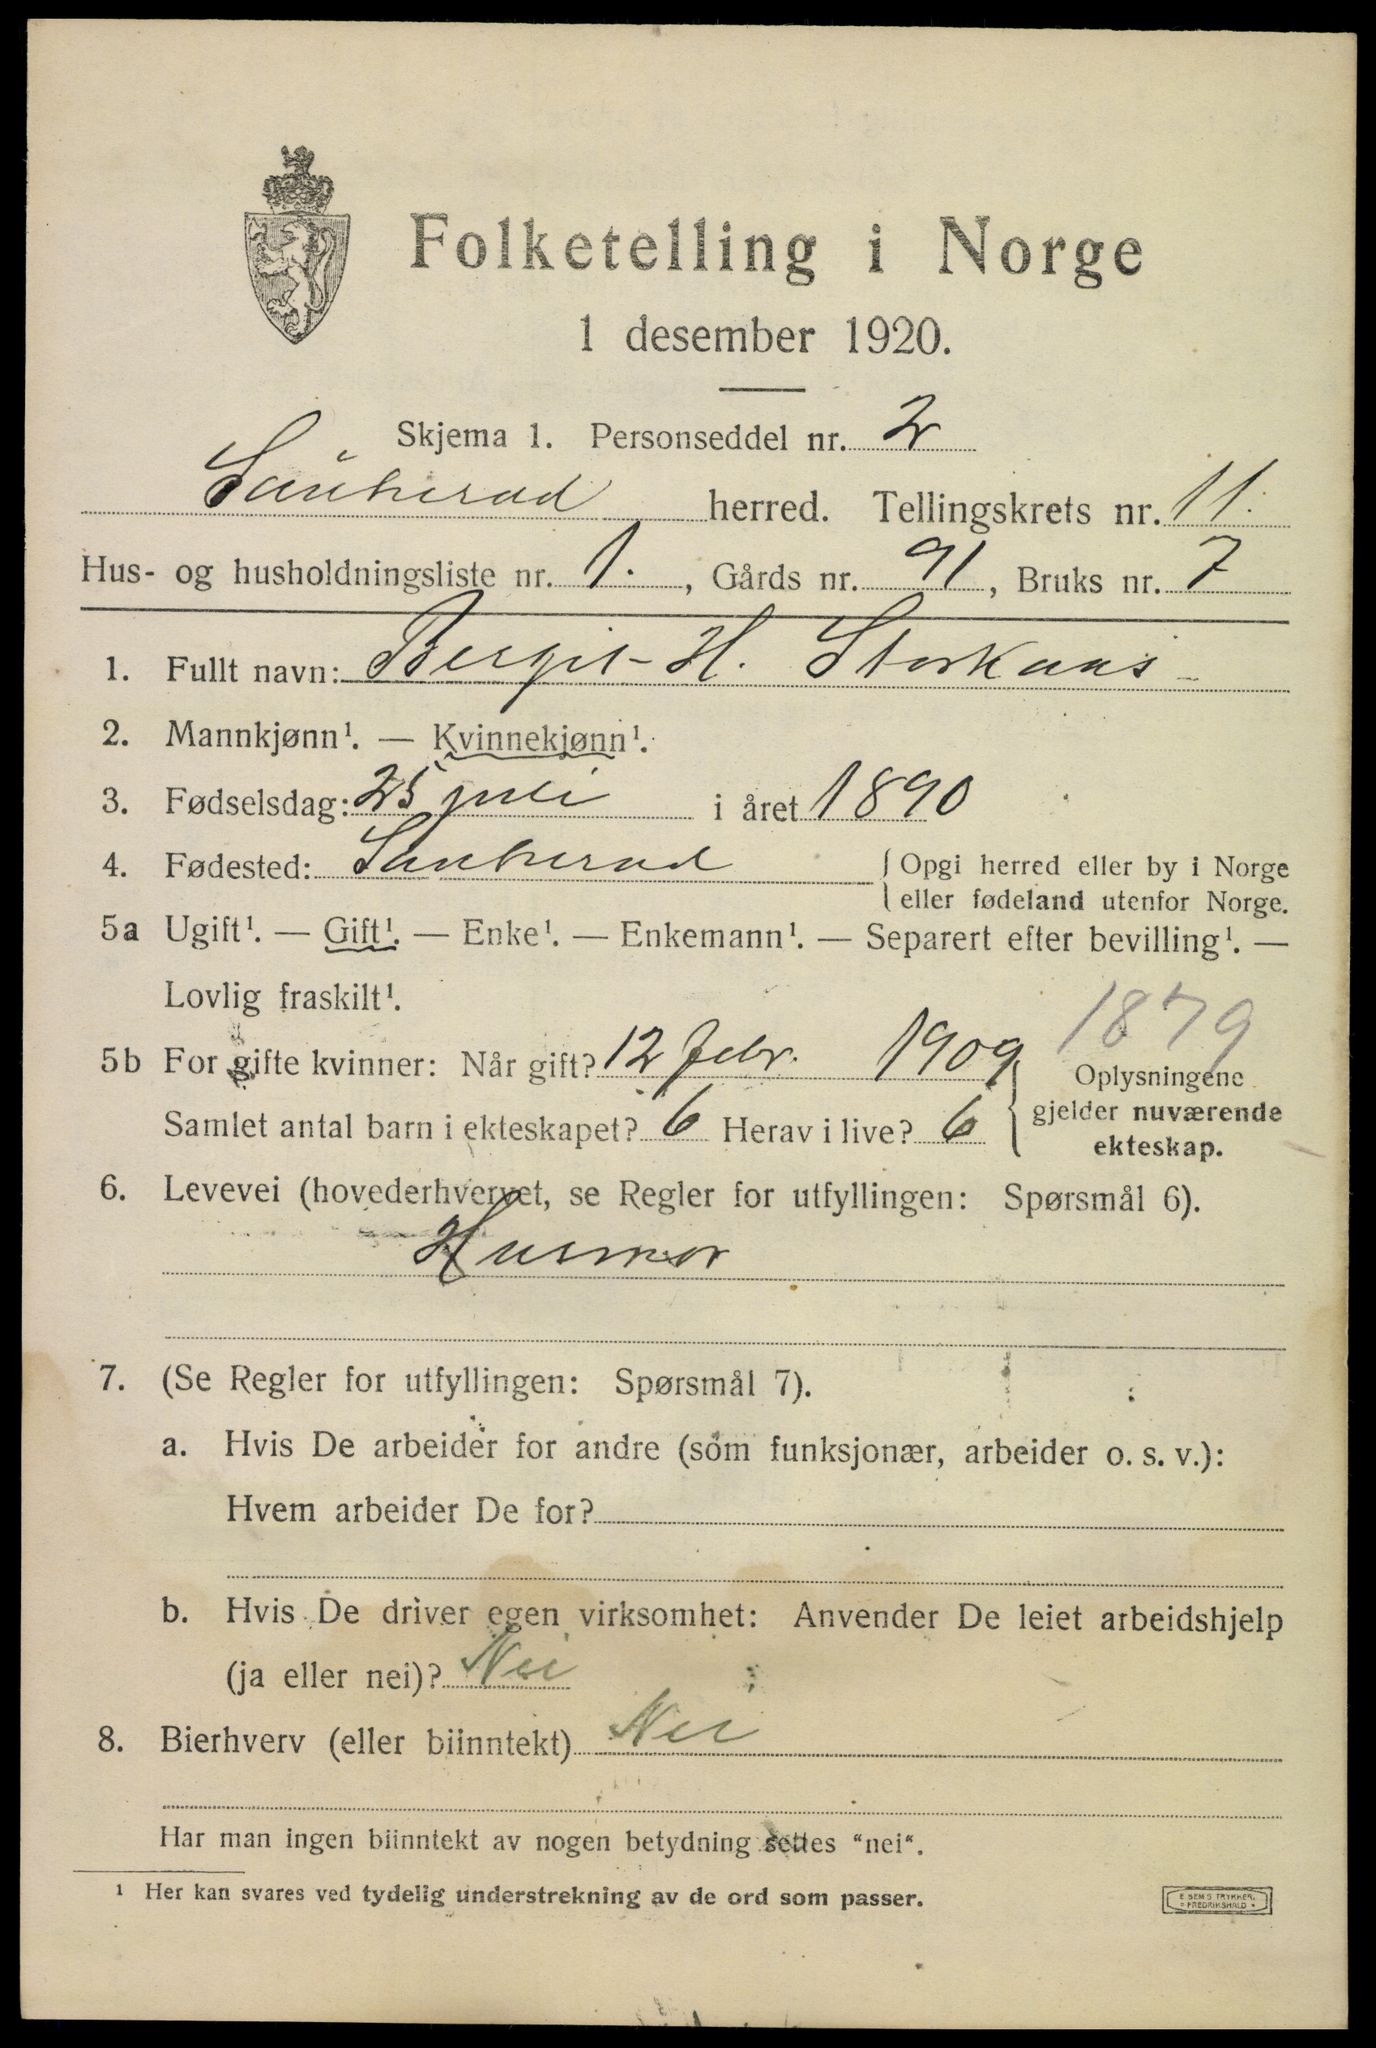 Folketelling i Norge
1 desember 1920.
Skjema 1. Personseddel nr. 2
Sauherad herred. Tellingskrets nr. 11.
Hus- og husholdningsliste nr. 1. , Gårds nr. 91, Bruks nr. 7
1. Fullt navn: Bergit H. Storkaas
2. Mannkjønn¹. — Kvinnekjønn¹.
3. Fødselsdag: 25 juli i året 1890
4. Fødested: Sauherad { Opgi herred eller by i Norge
{ eller fødeland utenfor Norge.
5a Ugift¹. — Gift¹. — Enke¹. — Enkemann¹. — Separert efter bevilling¹. —
Lovlig fraskilt¹.
1879
5b For gifte kvinner: Når gift? 12 febr. 1909 Oplysningene
Samlet antal barn i ekteskapet? 6 Herav i live? 6 gjelder nuværende
ekteskap.
6. Levevei (hovederhvervet, se Regler for utfyllingen: Spørsmål 6).
Husmor
7. (Se Regler for utfyllingen: Spørsmål 7).
a. Hvis De arbeider for andre (som funksjonær, arbeider o. s. v.):
Hvem arbeider De for?
b. Hvis De driver egen virksomhet: Anvender De leiet arbeidshjelp
(ja eller nei)? Nei
8. Bierhverv (eller biinntekt) Nei
Har man ingen biinntekt av nogen betydning settes "nei".
¹ Her kan svares ved tydelig understrekning av de ord som passer.
E SEMS TRYKKERI
FREDRIKSHALD